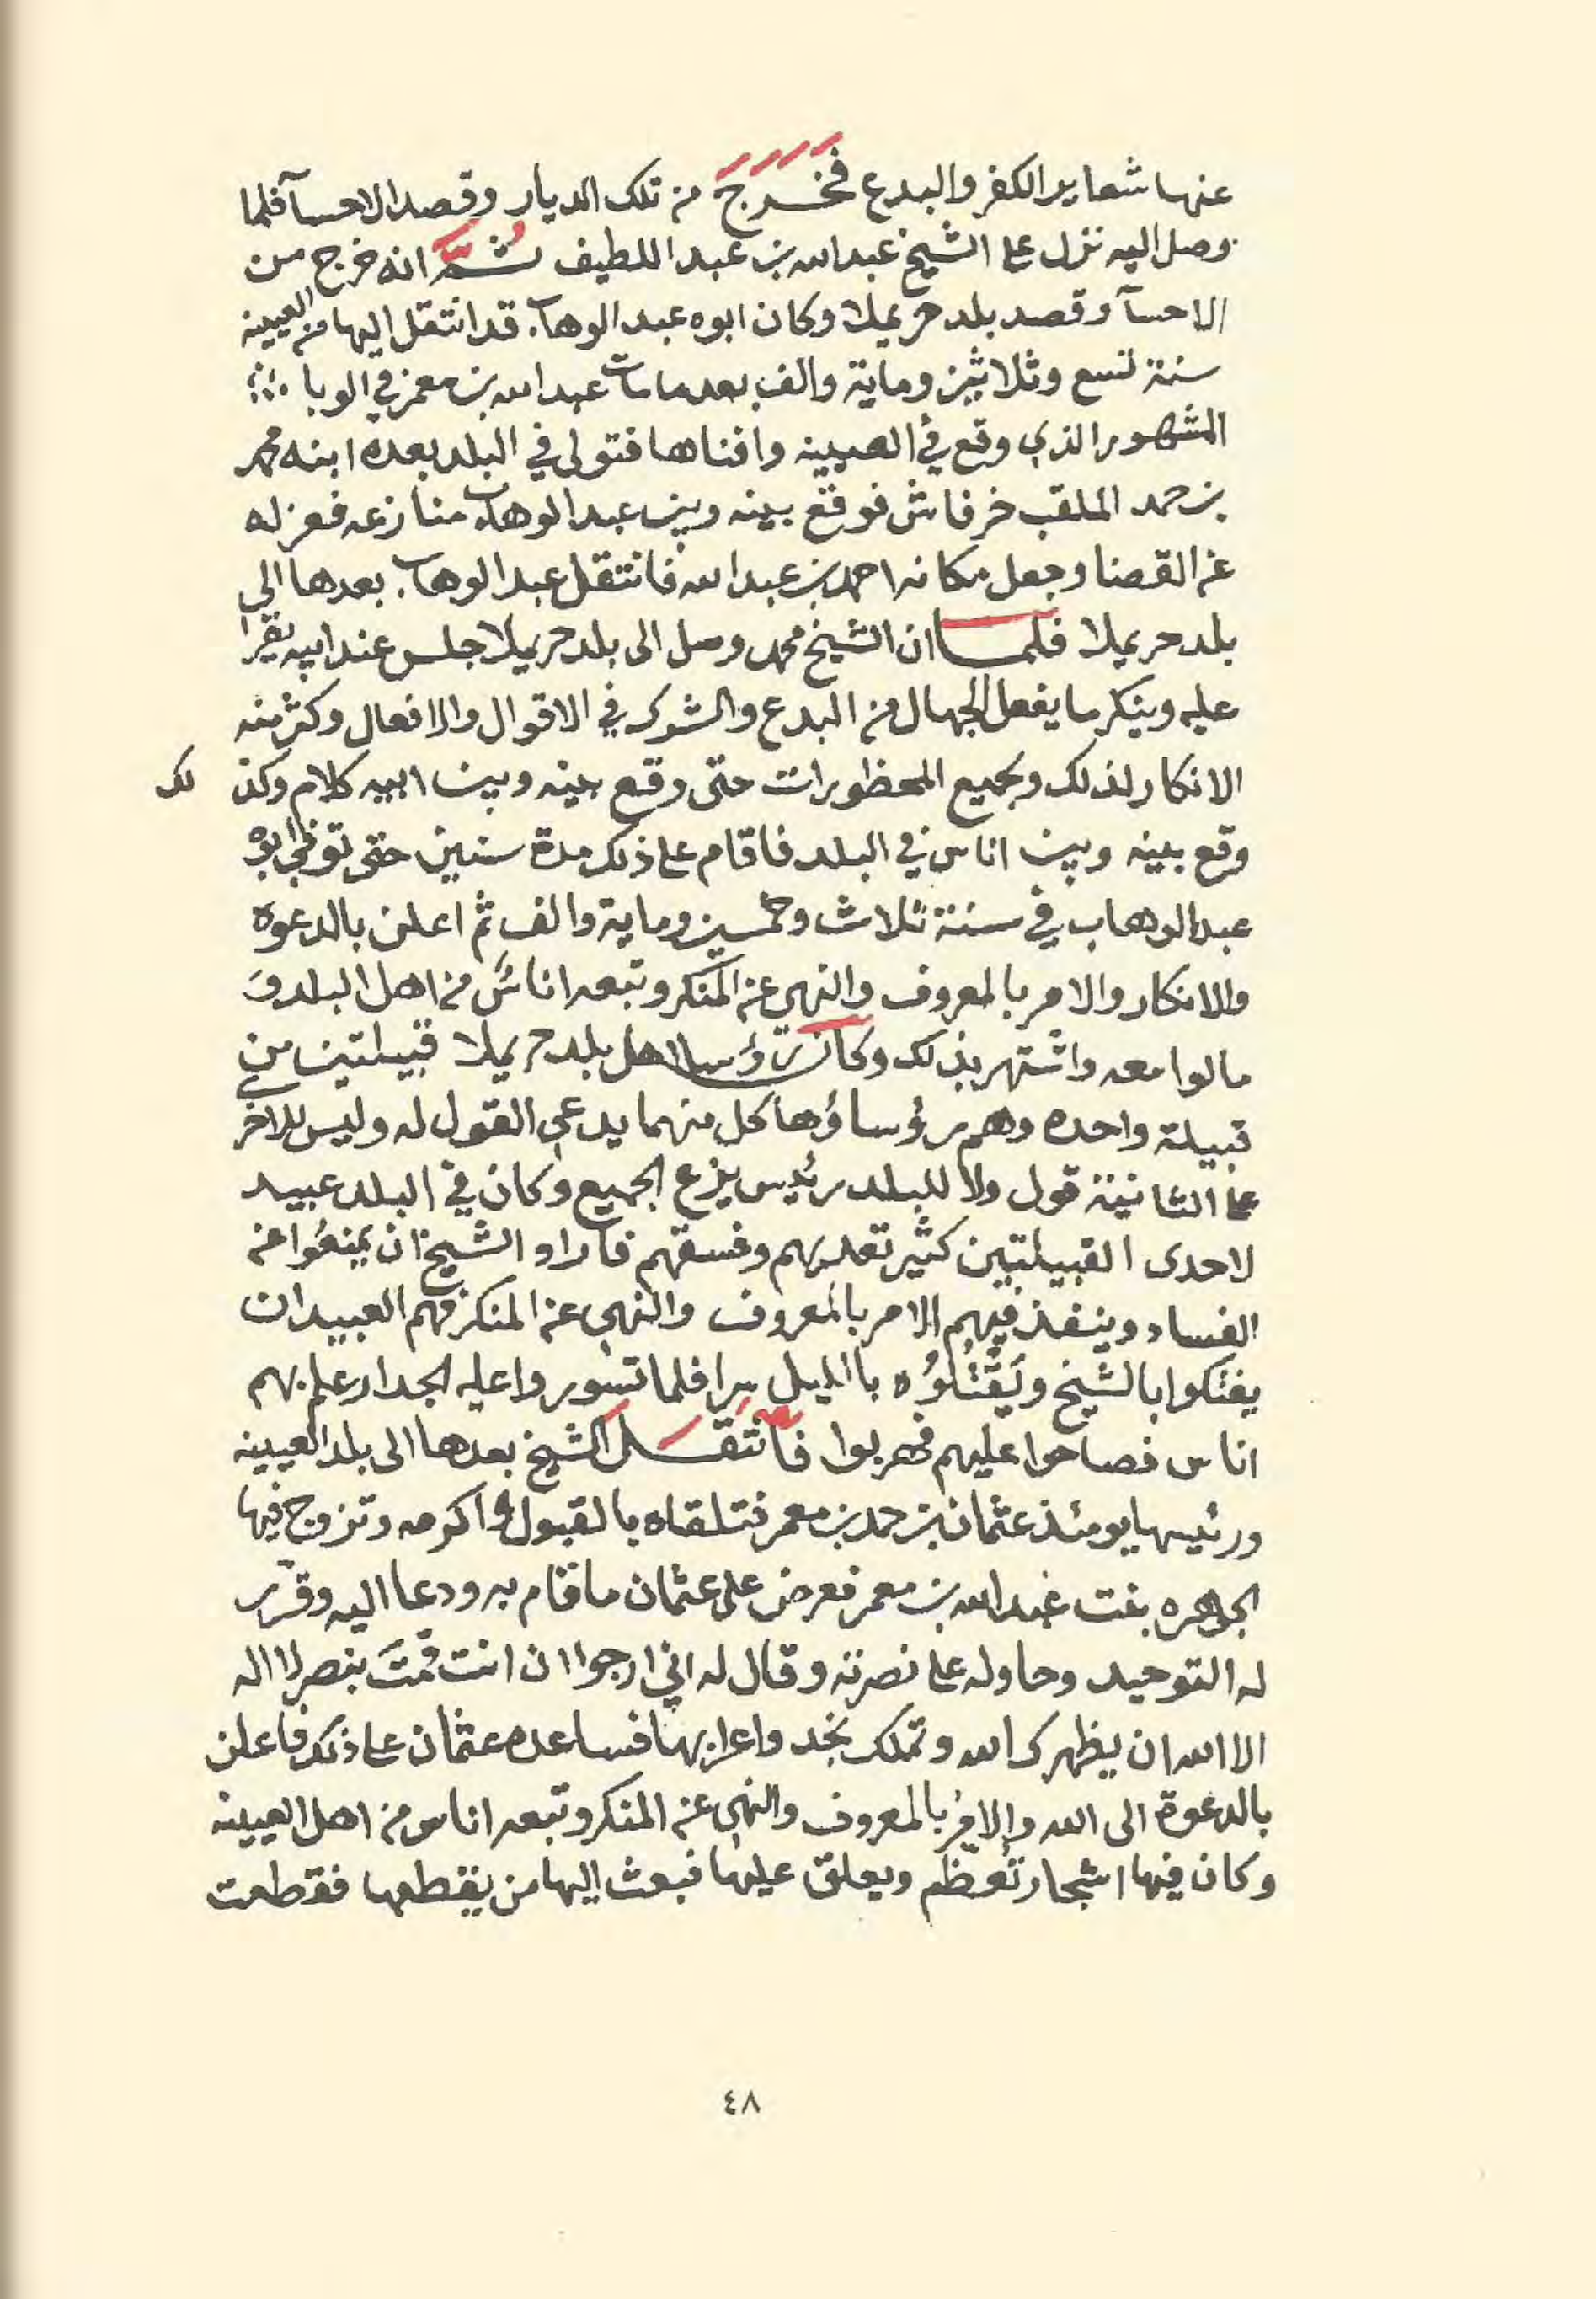 عنها شعاير الكفر والبدع فَخَرَجَ من تلك الديار وقصد الاحسآ فلما
وصل اليه نزل على الشيخ عبدالله بن عبد اللطيف ثُمَّ انه خرج من
الاحسآ وقصد بلد حريملا وكان ابوه عبد الوهاب قد انتقل اليها من العيينه
سنة تسع وثلاثين وماية والف بعد ما مات عبدالله بن معمر في الوبا
المشهور الذي وقع في العيينه وافناها فتولى في البلد بعده ابنه محمد
بن حمد الملقب خرفاش فوقع بينه وبين عبد الوهاب منازعه فعزله
عن القضا وجعل مكانه احمد بن عبدالله فانتقل عبد الوهاب بعدها الى
بلد حريملا فلما ان الشيخ محمد وصل الى بلد حريملا جلس عند ابيه يقرا
عليه وينكر ما يفعل الجهال من البدع والشرك في الاقوال والافعال وكثر منه
الانكار لذلك ولجميع المحظورات حتى وقع بينه وبين ابيه كلام وكذ لك
وقع بينه وبين اناس في البلد فاقام على ذلك مدة سنين حتى توفي ابوه
عبدالوهاب في سنة ثلاث وخمسين وماية والف ثم اعلن بالدعوه
والانكار والامر بالمعروف والنهي عن المنكر وتبعه اناسٌ من اهل البلد وَ
مالوا معه واشتهر بذلك وكان رؤسا اهل بلد حريملا قبيلتين من
قبيلة واحده وهم رؤساؤها كل منهما يدعي القول له وليس للاخر
على الثانية قول ولا للبلد رئيس يزع الجميع وكان في البلد عبيد
لاحدى القبيلتين كثير تعديهم وفسقهم فاراد الشيخ ان يمنعُوا عن
الفساد وينفذ فيهم الامر بالمعروف والنهي عن المنكر فهم العبيد ان
يفتكوا بالشيخ ويَقْتُلُوُه بالليل سرا فلما تسوروا عليه الجدار علم بهم
اناس فصاحوا عليهم فهربوا فانتَقَل الشيخ بعدها الى بلد العيينه
ورئيسها يومئذ عثمان بن حمد بن معمر فتلقاه بالقبول واكرمه وتزوج فيها
الجوهره بنت عبدالله بن معمر فعرض على عثمان ما قام به ودعا اليه وقرّر
له التوحيد وحاوله على نصرته وقال له اني ارجوا ان انت قمتَ بنصر لا اله
الا الله ان يظهرك الله وتملك نجد واعرابها فساعده عثمان على ذلك فاعلن
بالدعوة الى الله والامر بالمعروف والنهي عن المنكر وتبعه اناس من اهل العيينه
وكان فيها اشجار تُعظَّم ويعلق عليها فبعث اليها من يقطعها فقطعت
٤٨